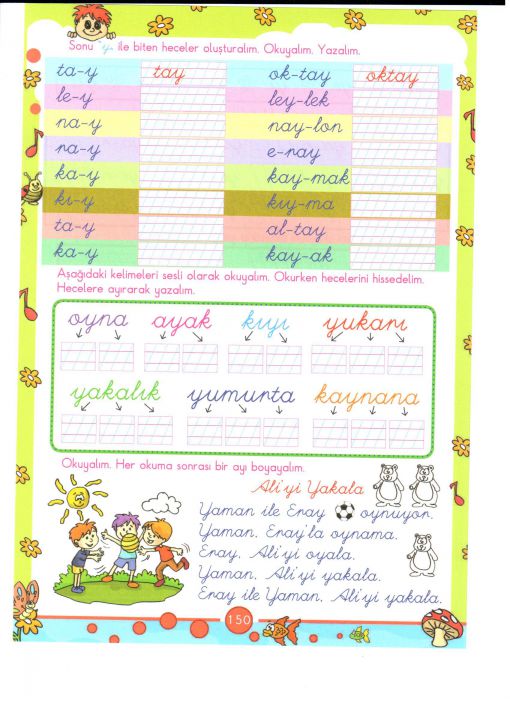 Sonu "y" ile biten heceler oluşturalım. Okuyalım. Yazalım.
ta-y tay ok-tay oktay
le-y ley-lek
na-y nay-lon
ra-y e-ray
ka-y kay-mak
kı-y kıy-ma
ta-y al-tay
ka-y kay-ak
Aşağıdaki kelimeleri sesli olarak okuyalım. Okurken hecelerini hissedelim.
Hecelere ayırarak yazalım.
oyna ayak kıyı yukarı
yakalık yumurta kaynana
Okuyalım. Her okuma sonrası bir ayı boyayalım.
Ali'yi Yakala
Yaman ile Eray oynuyor.
Yaman, Eray'la oynama.
Eray, Ali'yi oyala.
Yaman, Ali'yi yakala.
Eray ile Yaman, Ali'yi yakala.
150